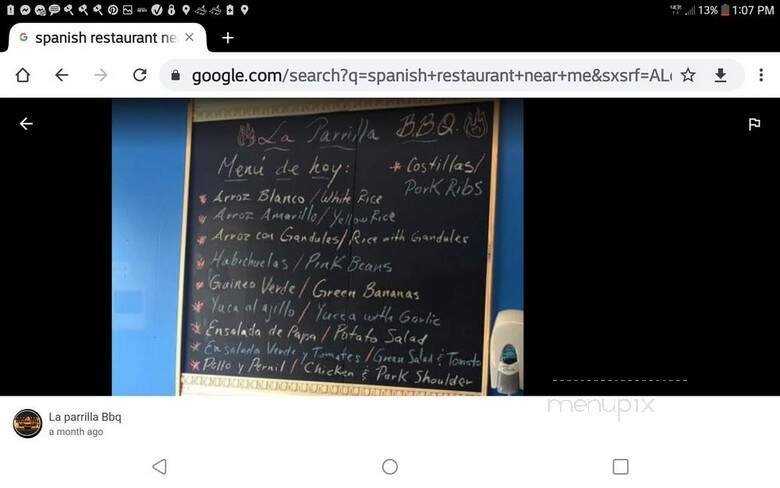 13% 1:07 PM
spanish restaurant ne
google.com/search?q=spanish+restaurant+near+me&sxsrf=AL
La Parrilla B.B.Q.
Menú de hoy:
* Costillas/
Pork Ribs
* Arroz Blanco / White Rice
* Arroz Amarillo / Yellow Rice
* Arroz con Gandules / Rice with Gandules
* Habichuelas / Pink Beans
* Guineo Verde / Green Bananas
* Yuca al ajillo / Yucca with Garlic
* Ensalada de Papa / Potato Salad
* Ensalada Verde y Tomates / Green Salad & Tomato
* Pollo y Pernil / Chicken & Pork Shoulder
menupix
La parrilla Bbq
a month ago